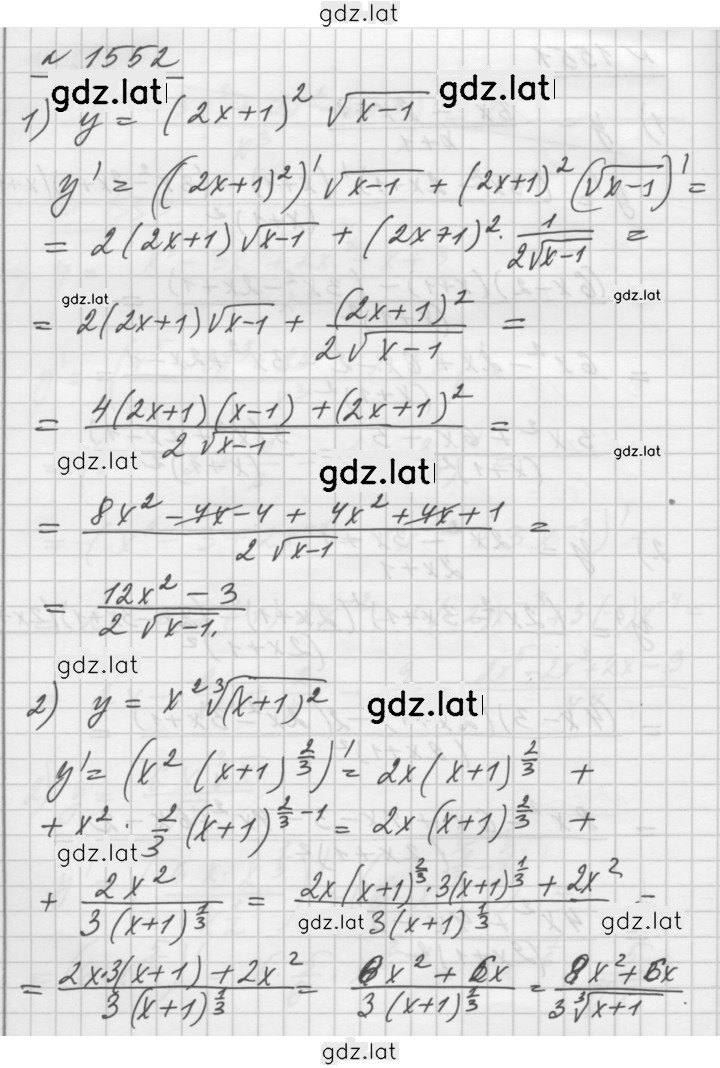 gdz.lat
№ 1552
gdz.lat gdz.lat
1) y = (2x+1)² √(x-1)
y' = ((2x+1)²)' √(x-1) + (2x+1)² (√(x-1))' =
= 2(2x+1) √(x-1) + (2x+1)² · 1/(2√(x-1)) =
gdz.lat gdz.lat
= 2(2x+1)√(x-1) + (2x+1)²/(2√(x-1)) =
= (4(2x+1)(x-1) + (2x+1)²)/(2√(x-1)) =
gdz.lat gdz.lat gdz.lat
= (8x² - 4x - 4 + 4x² + 4x + 1)/(2√(x-1)) =
= (12x² - 3)/(2√(x-1)).
gdz.lat
2) y = x² ∛((x+1)²) gdz.lat
y' = (x² (x+1)^(2/3))' = 2x(x+1)^(2/3) +
+ x² · 2/3 (x+1)^(2/3 - 1) = 2x(x+1)^(2/3) +
gdz.lat
+ 2x²/(3(x+1)^(1/3)) = (2x(x+1)^(2/3) · 3(x+1)^(1/3) + 2x²)/(3(x+1)^(1/3)) =
gdz.lat gdz.lat
= (2x·3(x+1) + 2x²)/(3(x+1)^(1/3)) = (8x² + 6x)/(3(x+1)^(1/3)) = (8x² + 6x)/(3∛(x+1))
gdz.lat